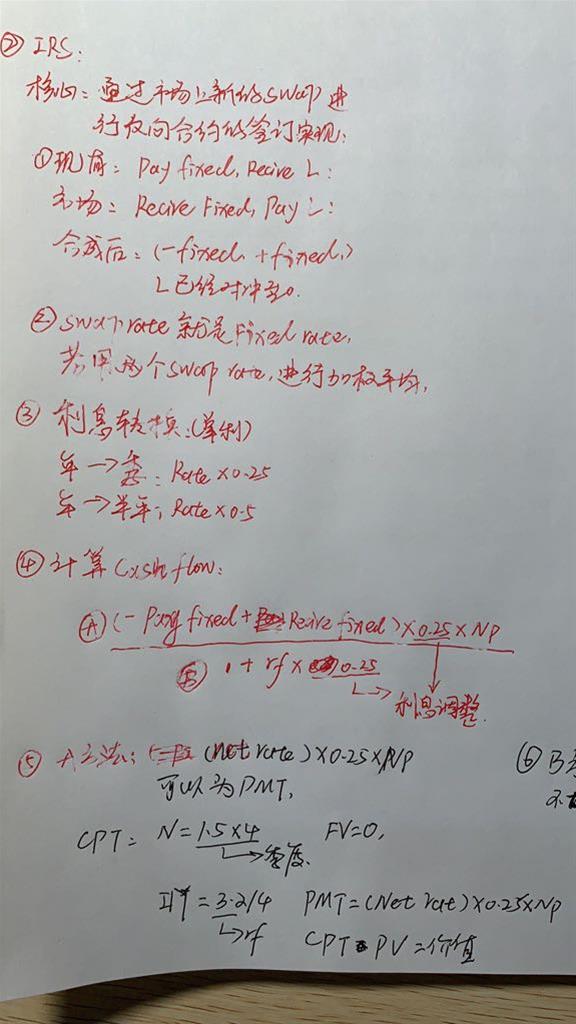 ② IRS:
核心: 通过市场上新的swap进
行反向合约的签订实现:
①现有: Pay fixed, Recive L:
市场: Recive Fixed, Pay L:
合成后: (-fixed, + fixed,)
L已经对冲至0.
② swap rate 就是Fixed rate,
若用两个swap rate, 进行加权平均,
③ 利息转换:(单利)
年→季: Rate×0.25
年→半年: Rate×0.5
④ 计算Cash flow:
Ⓐ (- Pay fixed + Recive fixed)×0.25×NP
Ⓑ 1 + rf × 0.25
↳ 利息调整
⑤ A方法: (Net rate)×0.25×NP
可以为PMT,
⑥ B
不
CPT: N=1.5×4 FV=0,
↳季度.
IY=3.2/4 PMT=(Net rate)×0.25×NP
↳rf CPT PV=价值